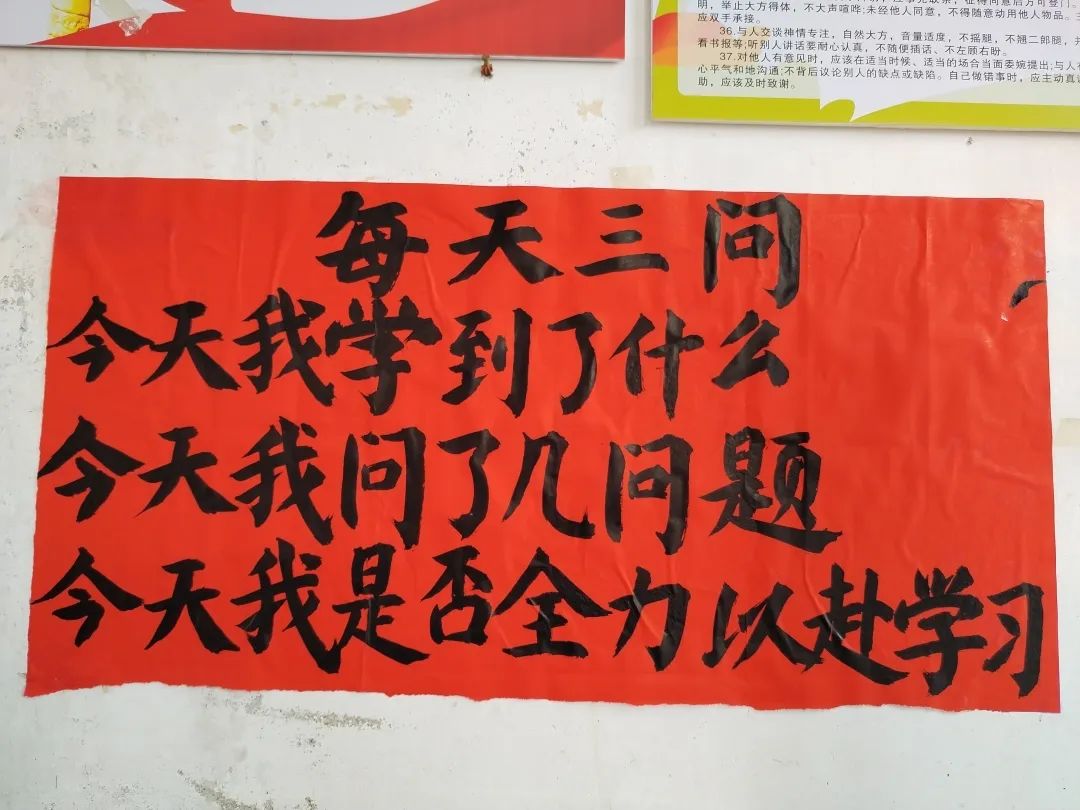 应双手承接。
36.与人交谈神情专注，自然大方，音量适度，不摇腿，不翘二郎腿，
看书报等;听别人讲话要耐心认真，不随便插话、不左顾右盼。
37.对他人有意见时，应该在适当时候、适当的场合当面委婉提出;与人
心平气和地沟通;不背后议论别人的缺点或缺陷。自己做错事时，应主动真
助，应该及时致谢。
明，举止大方得体，不大声喧哗;未经他人同意，不得随意动用他人物品。
每天三问
今天我学到了什么
今天我问了几问题
今天我是否全力以赴学习